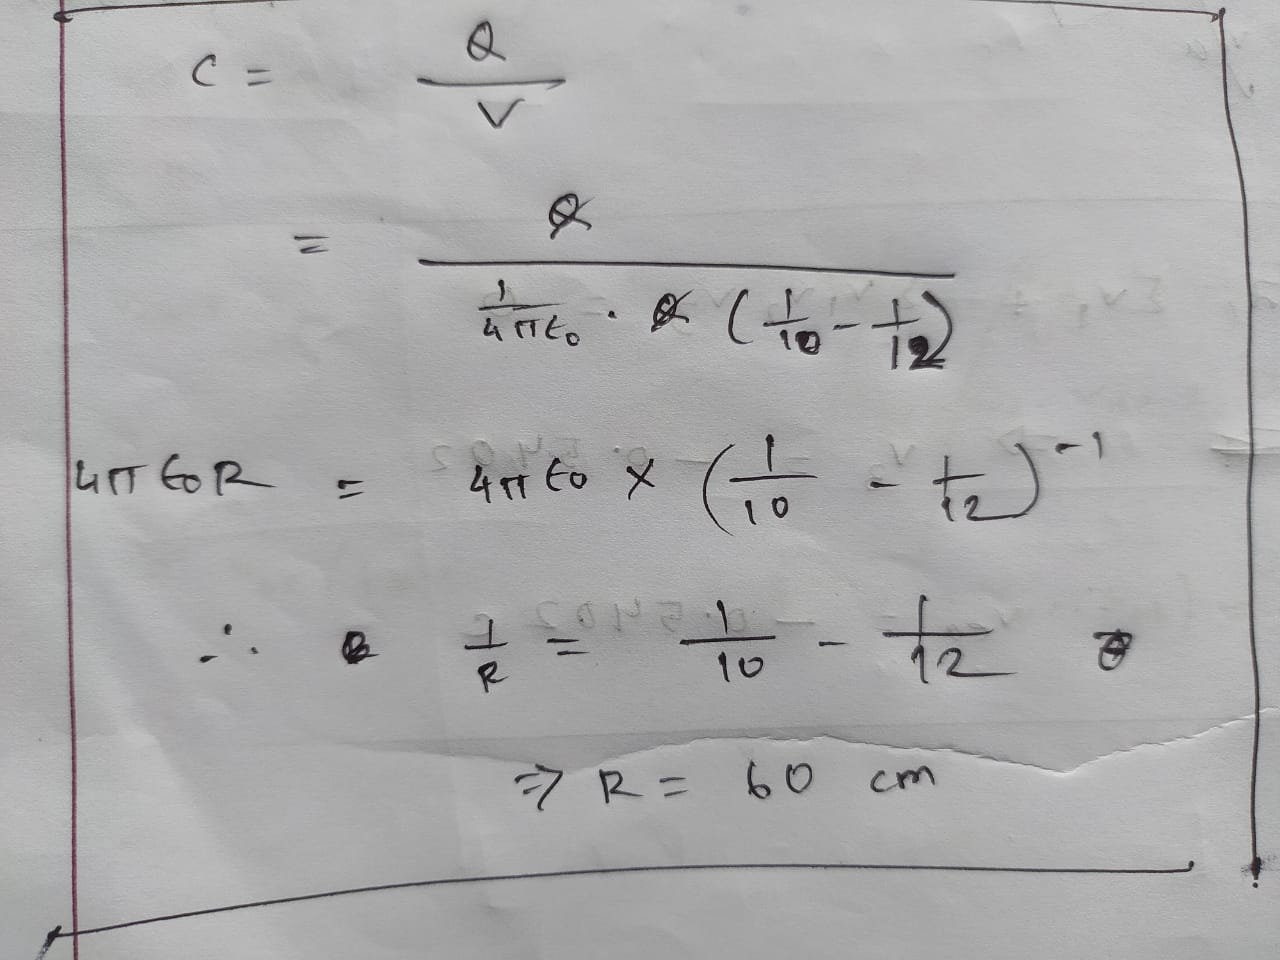 C = Q/V
= Q/(1/4πϵ0 · Q (1/10 - 1/12))
4πϵ0R = 4πϵ0 × (1/10 - 1/12)^-1
∴ 1/R = 1/10 - 1/12
⇒ R = 60 cm